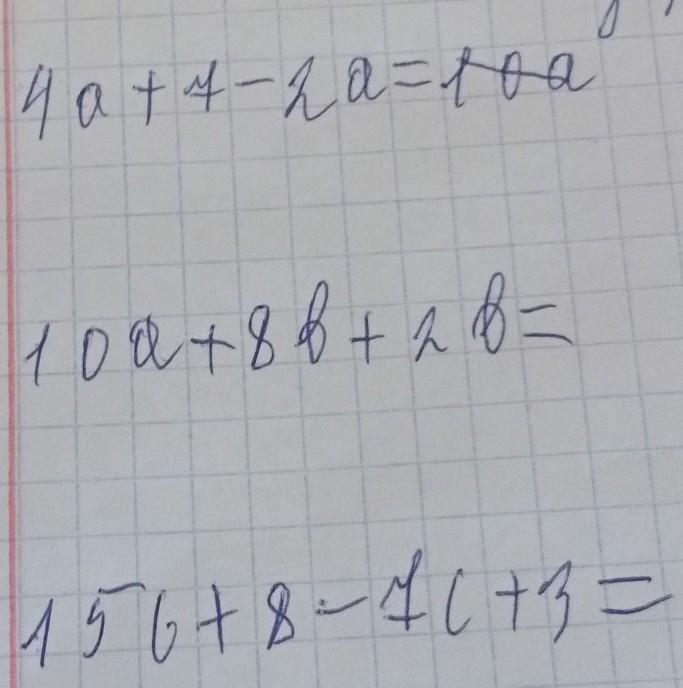 4a + 7 - 2a = 10a
10a + 8b + 2b =
15c + 8 - 7c + 3 =